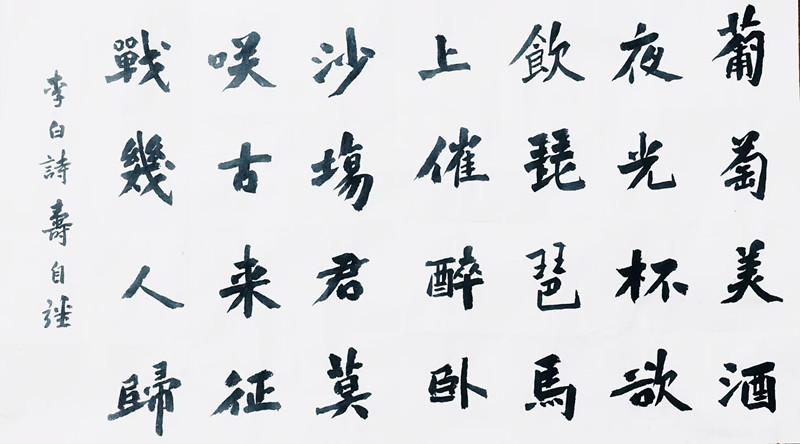 葡萄美酒
夜光杯欲
飲琵琶馬
上催醉臥
沙場君莫
咲古来征
戰幾人歸
李白詩壽自強